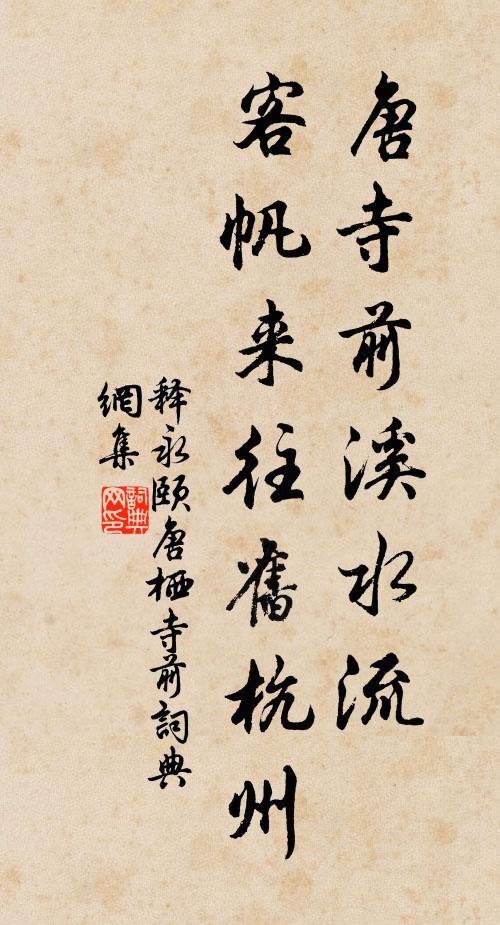 唐寺前溪水流
客帆来往舊杭州
释永颐唐栖寺前詞典
網集
詞典网印